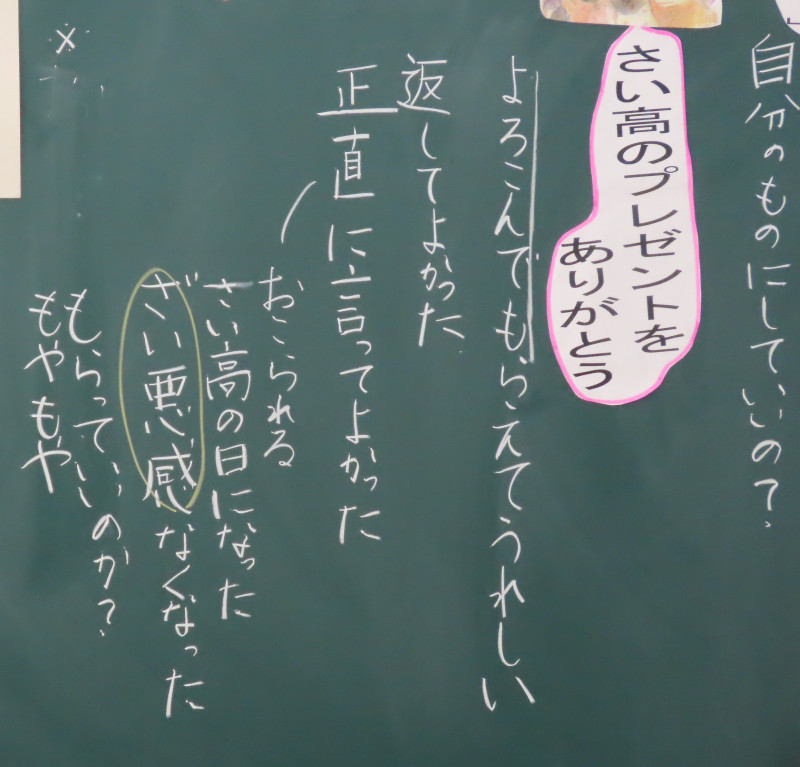 自分のものにしていいの?
さい高のプレゼントを
ありがとう
よろこんでもらえてうれしい
返してよかった
正直に言ってよかった
おこられる
さい高の日になった
ざい悪感なくなった
もらっていいのか?
もやもや